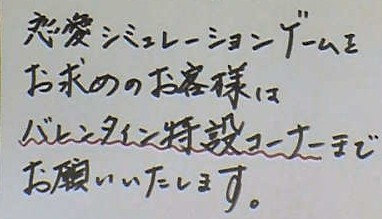 恋愛シミュレーションゲームを
お求めのお客様は
バレンタイン特設コーナーまで
お願いいたします。